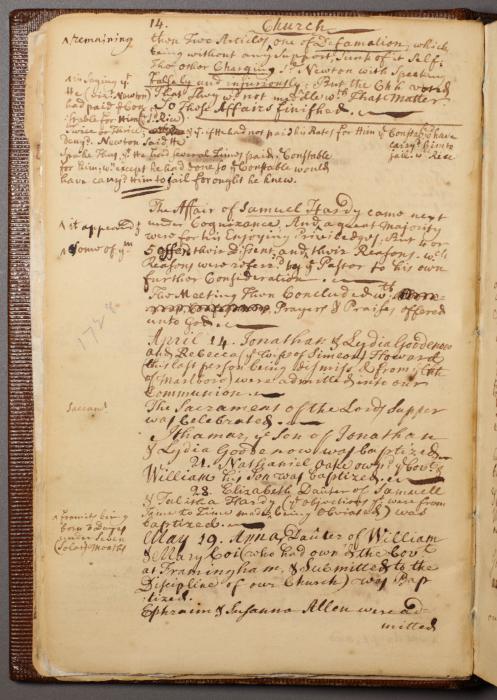 14. Church
^ remaining
then Two Articles, one of Defamation, which
being without any Support, Sunk of it Self.
The other Charging Newton with Speaking
falsely and injuriously. But the Chh would
That They w not meddle wth That Matter.
So Those Affairs finished.
^ in Saying yt
He (Newton)
had paid ye Con-
stable for Him
twice or thrice.
Newton Said He
Spake Thus, yt He had several Times paid ye Constable
for Him, except he had done so ye Constable would
have carryd Him to Jail for ought he knew.
yt if He had not paid his Rates for Him ye Constable would have
carryd him to
Jail.
The Affair of Samuel Hardy came next
^ it appeared
under Cognizance. And a great Majority
were for his Enjoying Priviledges, But 4 or
^ Some of ym
5 offerd their dissent, and their Reasons. wch
Reasons were referrd by ye Pastor to his own
further Consideration.
The Meeting Then Concluded wth
Prayers & Praises offered
unto God.
1728
April 14. Jonathan & Lydia Goodenow
and Rebecca ye Wife of Simeon Howard
this last person being dismissd from Chh
of Marlboro) were admitted into our
Communion.
Sacramt
The Sacrament of the Lords Supper
was Celebrated.
Ithamar ye Son of Jonathan
& Lydia Goodenow was baptized.
21. Nathaniel Oake ownd ye Covt &
William his Son was baptized.
28. Elizabeth Dauter of Samuell
& Tabitha Hardy (ye objections yt were from
Time to Time made being obviated) was
baptized.
being
born 3 Days
under seven
(Solar) Months
May 19. Anna, Dauter of William
& Mary Coi (who had ownd the Covt
at Framingham, & Submitted to the
Discipline of our Church) was Bap-
tized.
Ephraim & Susanna Allen were ad-
mitted